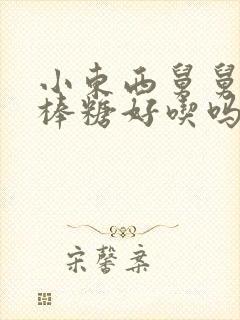 小东西舅舅
棒糖好喫吗
宋馨棄